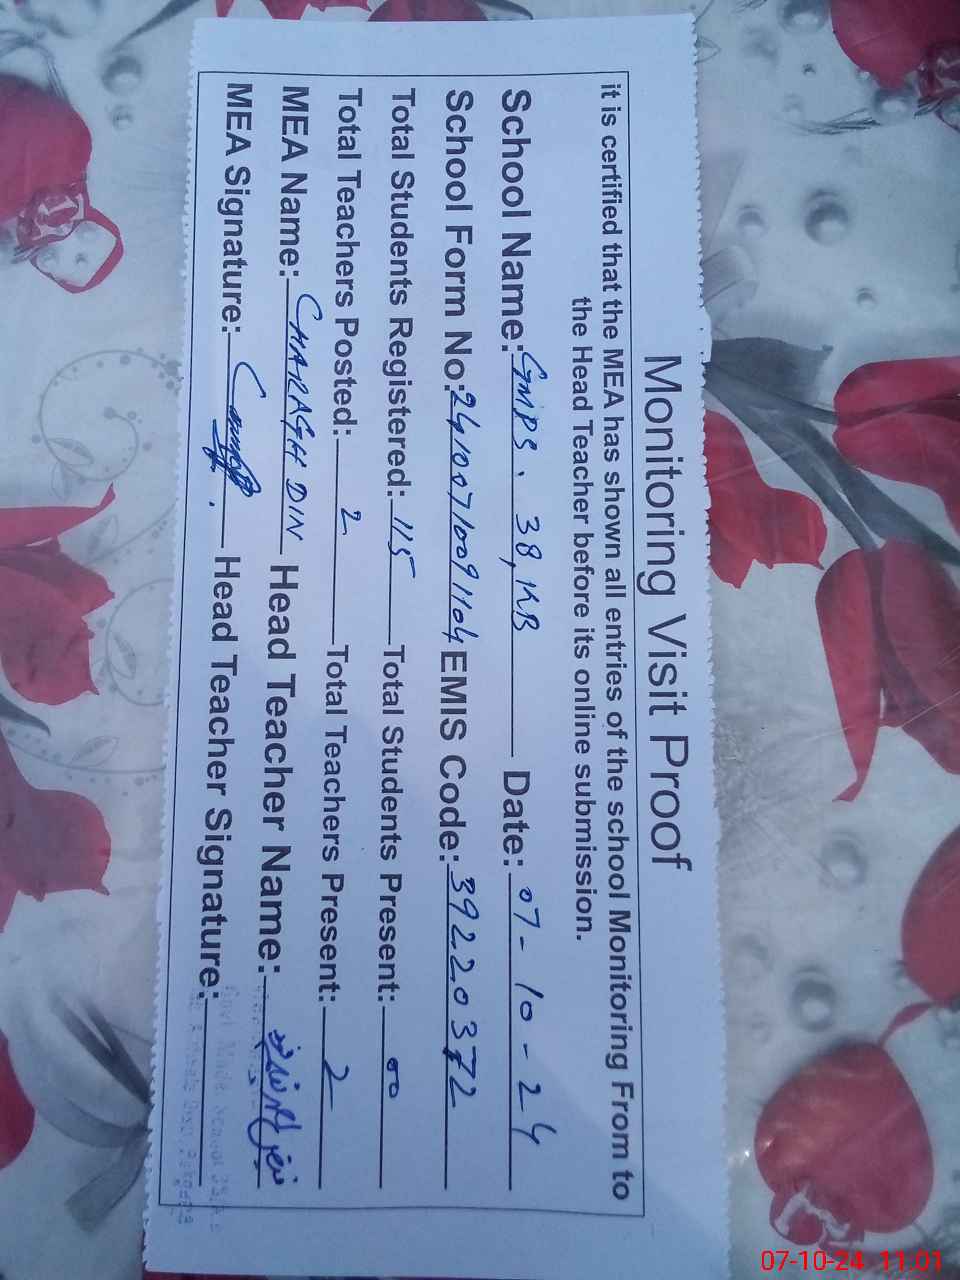 Monitoring Visit Proof
it is certified that the MEA has shown all entries of the school Monitoring From to
the Head Teacher before its online submission.
School Name: GMPS. 38, KB Date: 07-10-24
School Form No: 2410071009 1104 EMIS Code: 39220372
Total Students Registered: 115 Total Students Present: 00
Total Teachers Posted: 2 Total Teachers Present: 2
MEA Name: CHARAGH DIN Head Teacher Name:
MEA Signature: Head Teacher Signature:
07-10-24 11:01